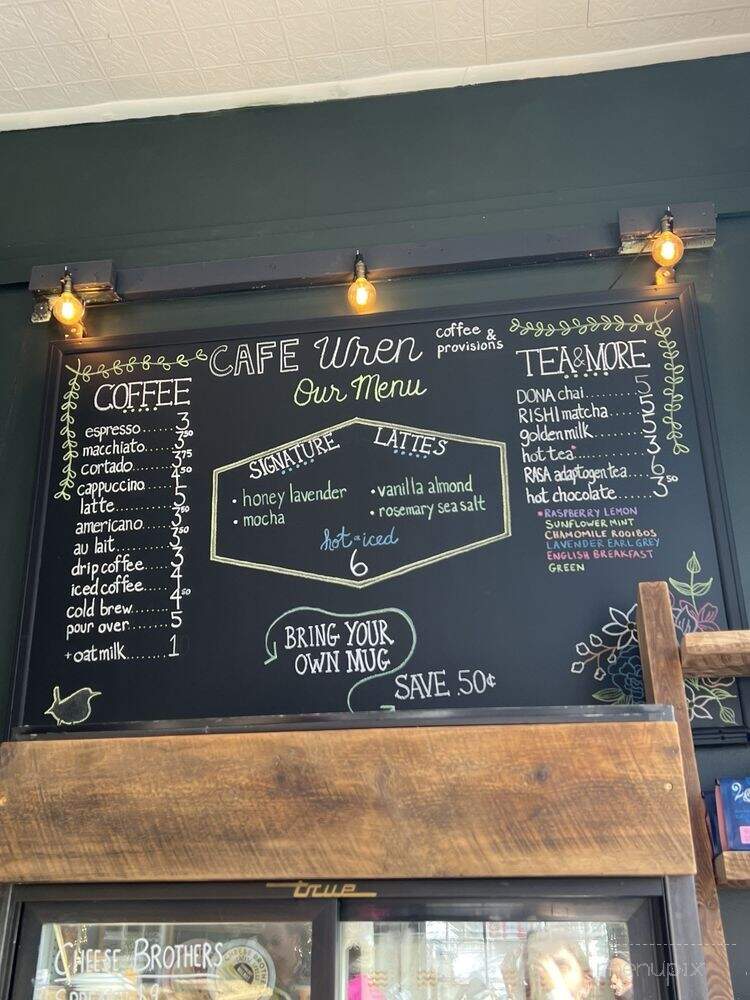 CAFE Wren coffee & provisions
Our Menu
COFFEE
espresso.....3
macchiato....3.50
cortado.....3.75
cappuccino....4.50
latte.....5
americano....3.50
au lait.....3.50
drip coffee....3
iced coffee....4
cold brew......4.50
pour over.....5
+oat milk........1
SIGNATURE LATTES
• honey lavender
• mocha
• vanilla almond
• rosemary sea salt
hot or iced
6
BRING YOUR
OWN MUG
SAVE .50¢
TEA & MORE
DONA chai.......5
RISHI matcha.....5
golden milk.......5
hot tea*........3
RASA adaptogen tea....6
hot chocolate......3.50
*RASPBERRY LEMON
SUNFLOWER MINT
CHAMOMILE ROOIBOS
LAVENDER EARL GREY
ENGLISH BREAKFAST
GREEN
true
CHEESE BROTHERS
menupix